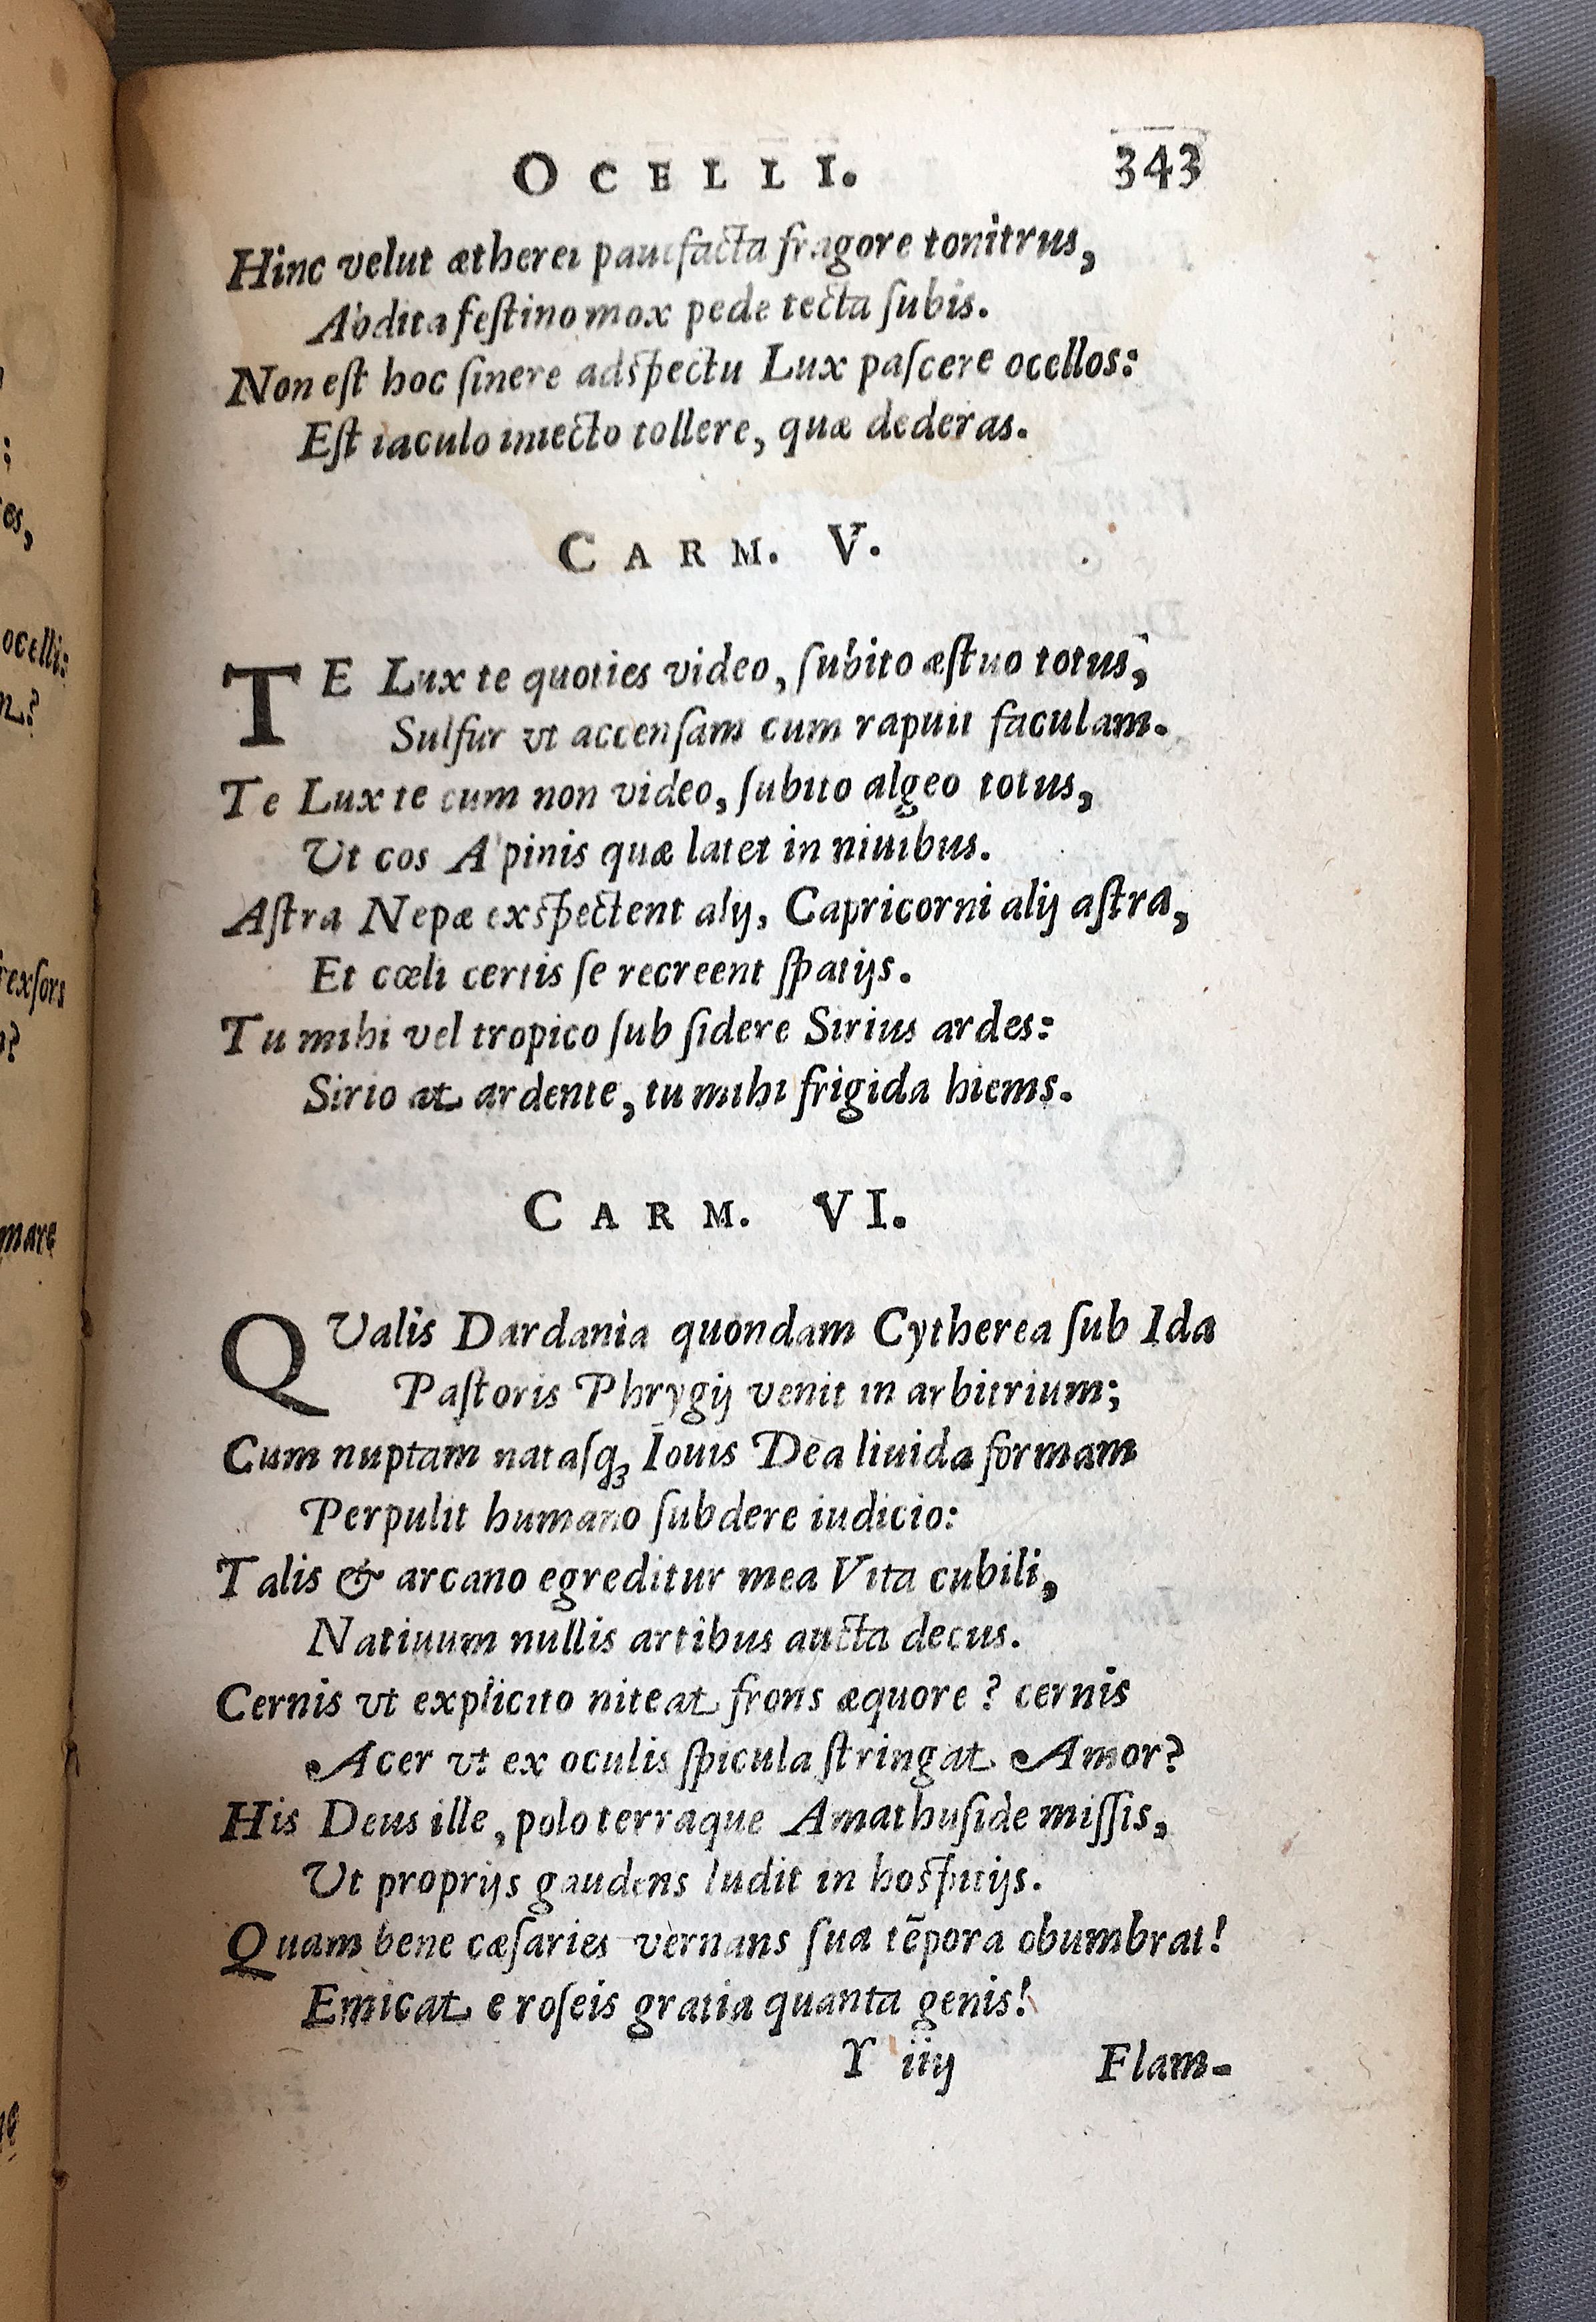 OCELLI. 343
Hinc velut ætherei pauefacta fragore tonitrus,
Abdita festino mox pede tecta subis.
Non est hoc sinere adspectu Lux pascere ocellos:
Est iaculo iniecto tollere, quæ dederas.
CARM. V.
TE Lux te quoties video, subito æstuo totus,
Sulfur vt accensam cum rapuit faculam.
Te Lux te cum non video, subito algeo totus,
Ut cos Alpinis quæ latet in niuibus.
Astra Nepæ exspectent alij, Capricorni alij astra,
Et cœli certis se recreent spatijs.
Tu mihi vel tropico sub sidere Sirius ardes:
Sirio at ardente, tu mihi frigida hiems.
CARM. VI.
QUalis Dardania quondam Cytherea sub Ida
Pastoris Phrygij venit in arbitrium;
Cum nuptam natasq; Iouis Dea liuida formam
Perpulit humano subdere iudicio:
Talis & arcano egreditur mea Vita cubili,
Natiuum nullis artibus aucta decus.
Cernis vt explicito niteat frons æquore? cernis
Acer vt ex oculis spicula stringat Amor?
His Deus ille, polo terraque Amathuside missis,
Ut proprijs gaudens ludit in hospitijs.
Quam bene cæsaries vernans sua tēpora obumbrat!
Emicat e roseis gratia quanta genis!
Y iiij Flam-
ocelli:
exsors
mare